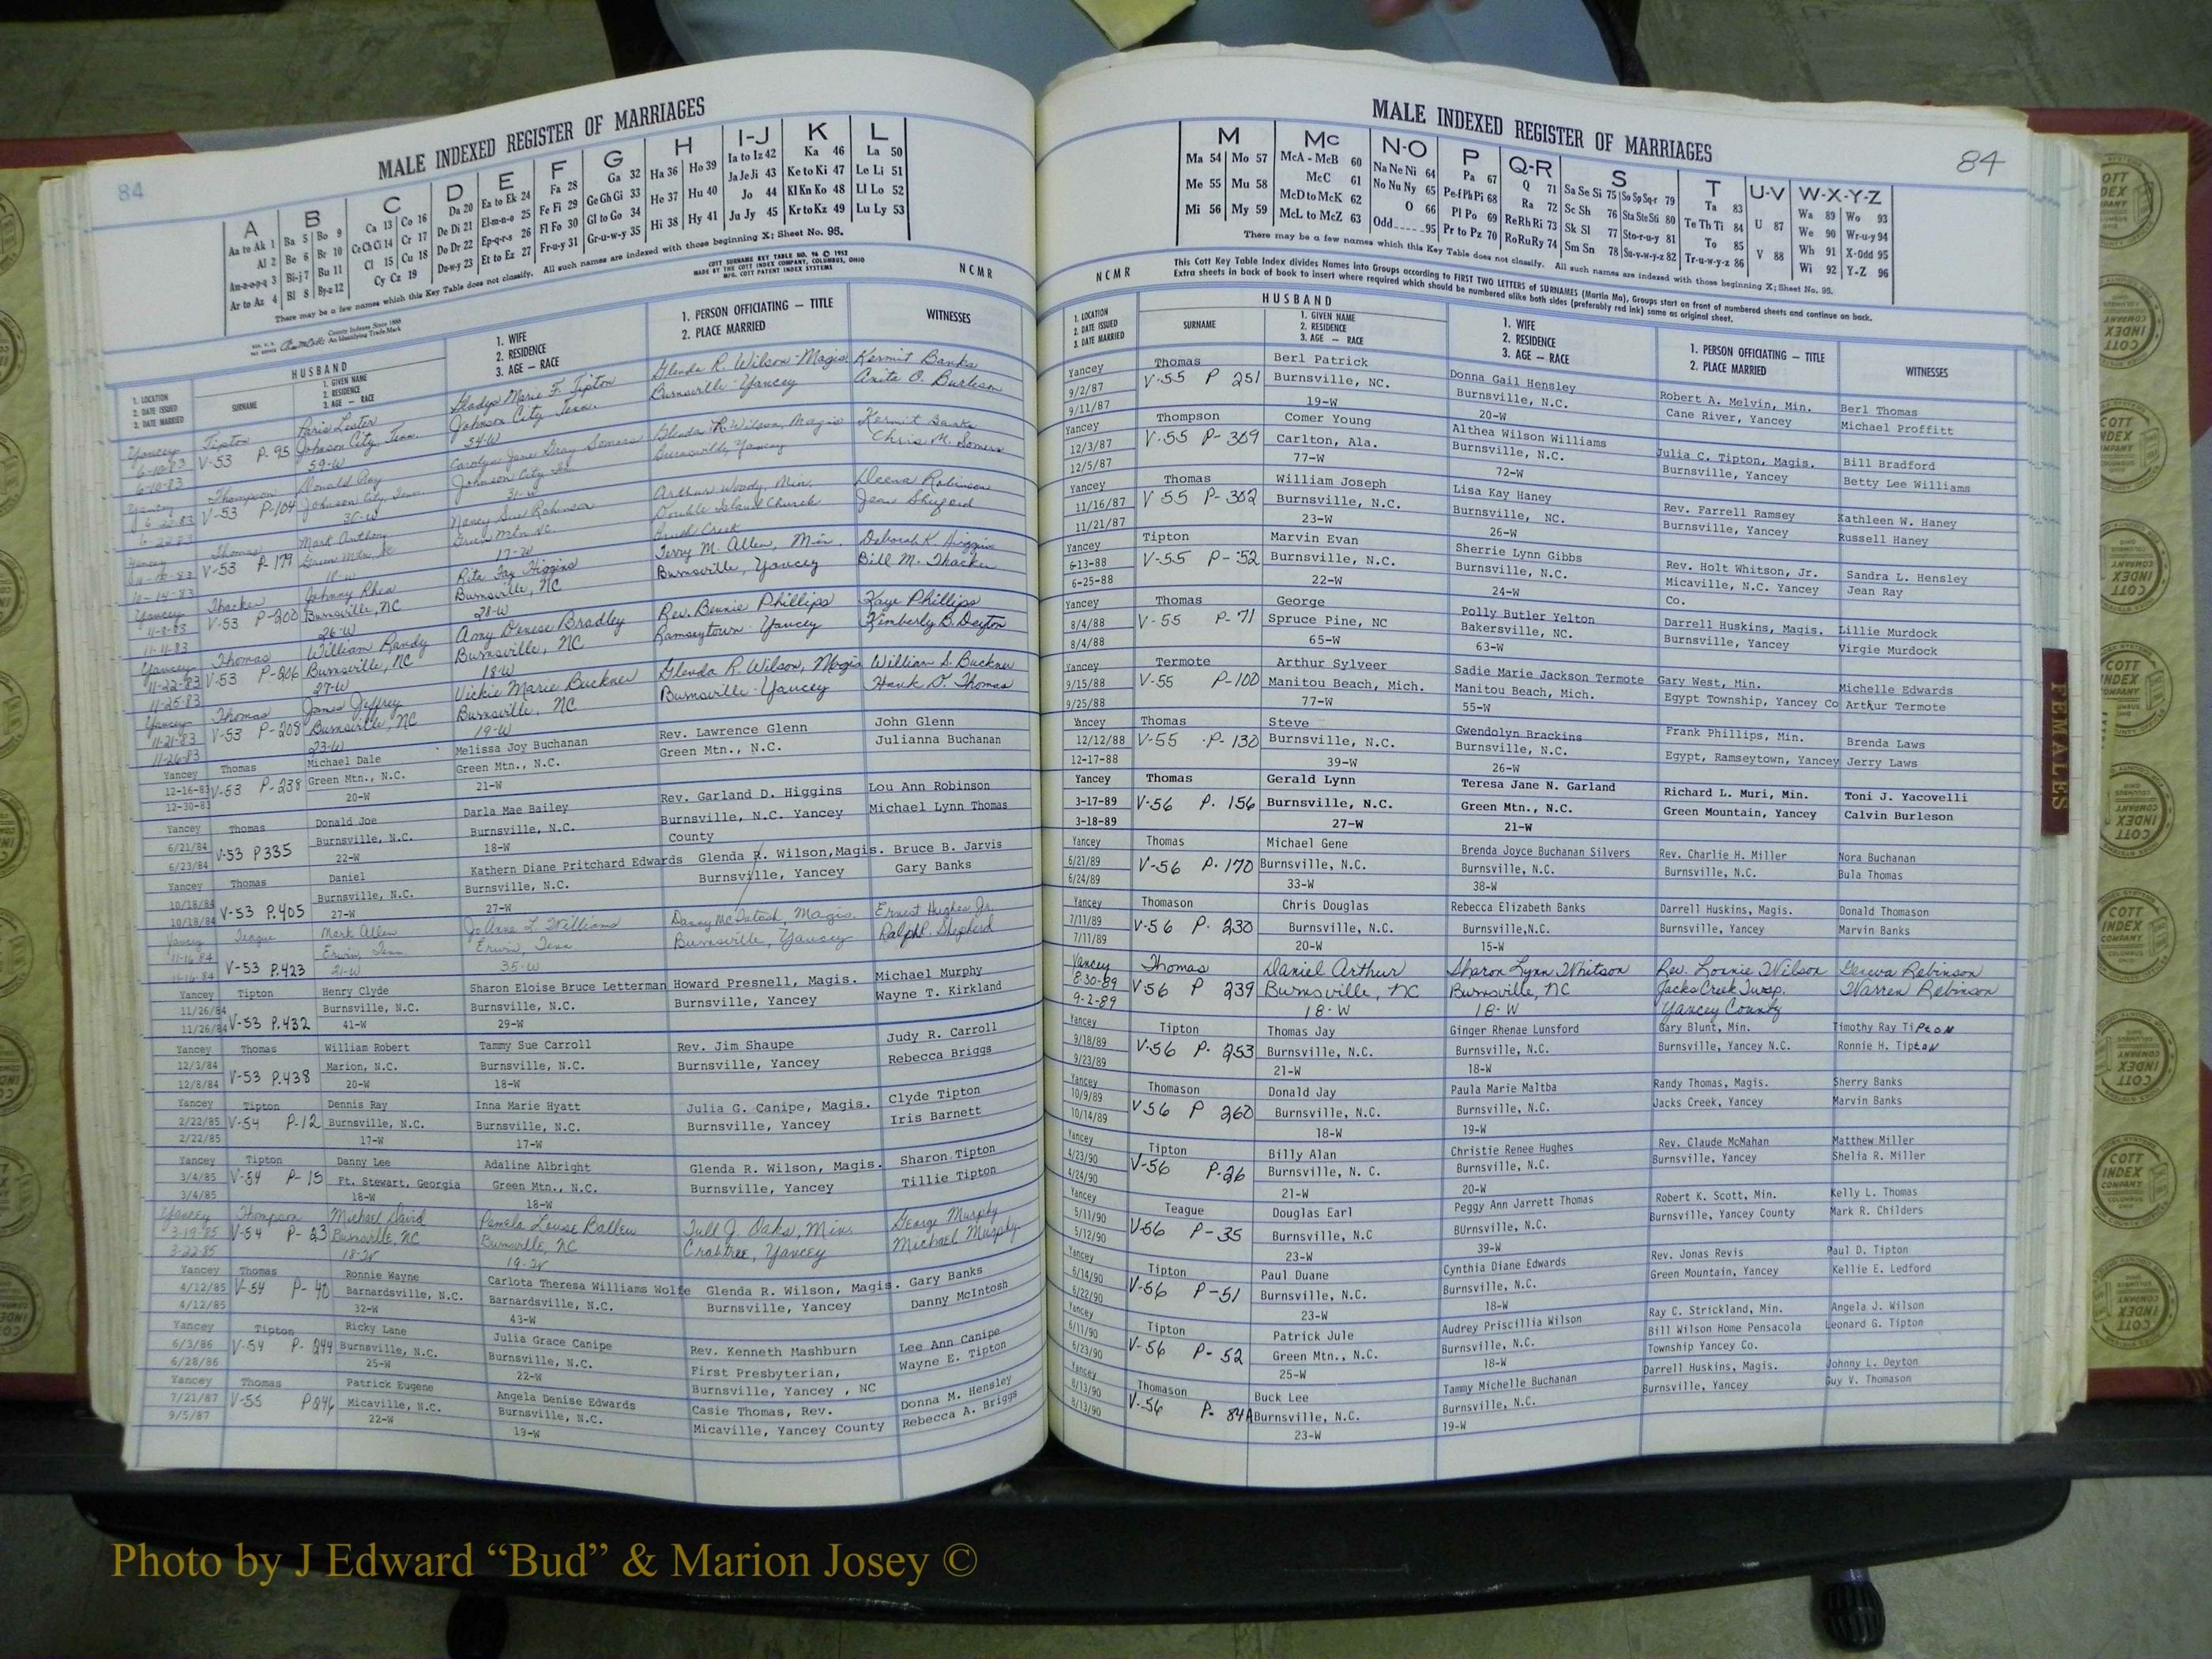 84
MALE INDEXED REGISTER OF MARRIAGES
A B C D E F G H I-J K L
Aa to Ak 1 Ba 5 Bo 9 Ca 13 Co 16 Da 20 Ea to Ek 24 Fa 28 Ga 32 Ha 36 Ho 39 Ia to Iz 42 Ka 46 La 50
Al 2 Be 6 Br 10 Ce Ch Ci 14 Cr 17 De Di 21 El-m-n-o 25 Fe Fi 29 Ge Gh Gi 33 He 37 Hu 40 Ja Je Ji 43 Ke to Ki 47 Le Li 51
An-z-o-p-q 3 Bi-j 7 Bu 11 Cl 15 Cu 18 Do Dr 22 Ep-q-r-s 26 Fl Fo 30 Gl to Go 34 Hi 38 Hy 41 Jo 44 Kl Kn Ko 48 Ll Lo 52
Ar to Az 4 Bl 8 By-z 12 Cy Cz 19 Du-w-y 23 Et to Ez 27 Fr-u-y 31 Gr-u-w-y 35 Ju Jy 45 Kr to Kz 49 Lu Ly 53
There may be a few names which this Key Table does not classify. All such names are indexed with those beginning X; Sheet No. 95.
COTT SURNAME KEY TABLE NO. 96 © 1952
MADE BY THE COTT INDEX COMPANY, COLUMBUS, OHIO
MFG. COTT PATENT INDEX SYSTEMS
NCMR
County Indexes Since 1888
An Identifying Trade Mark
HUSBAND
1. LOCATION
2. DATE ISSUED
3. DATE MARRIED
SURNAME
1. GIVEN NAME
2. RESIDENCE
3. AGE — RACE
1. WIFE
2. RESIDENCE
3. AGE — RACE
1. PERSON OFFICIATING — TITLE
2. PLACE MARRIED
WITNESSES
Yancey Tipton Paris Lester Gladys Marie F. Tipton Glenda R. Wilson-Magis Kermit Banks
6-10-83 V-53 P. 95 Johnson City, Tenn. Johnson City Tenn. Burnsville-Yancey Anita O. Burleson
6-10-83 59-W 34-W
Yancey Thompson Donald Ray Carolyn Jane Gray Somers Glenda R Wilson, Magis Kermit Banks
6-22-83 V-53 P-104 Johnson City, Tenn. Johnson City Tenn Burnsville, Yancey Chris M. Somers
6-22-83 30-W 31-W
Yancey Thomas Mark Anthony Nancy Sue Robinson Arthur Woody, Min. Deena Robinson
V-53 P-179 Green Mtn, NC Green Mtn. NC Double Island Church Jean Shuford
10-14-83 18-W 17-W Brush Creek
Yancey Thacker Johnny Rhea Rita Fay Higgins Terry M. Allen, Min. Deborah K. Higgins
11-8-83 V-53 P-200 Burnsville, NC Burnsville, NC Burnsville, Yancey Bill M. Thacker
11-11-83 26-W 28-W
Yancey Thomas William Randy Amy Denese Bradley Rev. Bennie Phillips Kaye Phillips
11-22-83 V-53 P-206 Burnsville, NC Burnsville, NC Ramseytown-Yancey Kimberly B. Deyton
11-25-83 27-W 18-W
Yancey Thomas James Jeffrey Vickie Marie Buckner Glenda R. Wilson, Magis William S. Buckner
11-21-83 V-53 P-208 Burnsville, NC Burnsville, NC Burnsville-Yancey Hank D. Thomas
11-26-83 23-W 19-W
Yancey Thomas Michael Dale Melissa Joy Buchanan Rev. Lawrence Glenn John Glenn
12-16-83 V-53 P-238 Green Mtn., N.C. Green Mtn., N.C. Green Mtn., N.C. Julianna Buchanan
12-30-83 20-W 21-W
Yancey Thomas Donald Joe Darla Mae Bailey Rev. Garland D. Higgins Lou Ann Robinson
6/21/84 V-53 P335 Burnsville, N.C. Burnsville, N.C. Burnsville, N.C. Yancey Michael Lynn Thomas
6/23/84 22-W 18-W County
Yancey Thomas Daniel Kathern Diane Pritchard Edwards Glenda R. Wilson,Magis. Bruce B. Jarvis
10/18/84 V-53 P.405 Burnsville, N.C. Burnsville, N.C. Burnsville, Yancey Gary Banks
10/18/84 27-W 27-W
Yancey Teague Mark Allen Jo Anne L. Williams Danny McIntosh, Magis. Ernest Hughes Jr.
11-16-84 V-53 P.423 Erwin, Tenn Erwin, Tenn Burnsville, Yancey Ralph P. Shepherd
11-16-84 21-W 35-W
Yancey Tipton Henry Clyde Sharon Eloise Bruce Letterman Howard Presnell, Magis. Michael Murphy
11/26/84 V-53 P.432 Burnsville, N.C. Burnsville, N.C. Burnsville, Yancey Wayne T. Kirkland
11/26/84 41-W 29-W
Yancey Thomas William Robert Tammy Sue Carroll Rev. Jim Shaupe Judy R. Carroll
12/3/84 V-53 P.438 Marion, N.C. Burnsville, N.C. Burnsville, Yancey Rebecca Briggs
12/8/84 20-W 18-W
Yancey Tipton Dennis Ray Inna Marie Hyatt Julia G. Canipe, Magis. Clyde Tipton
2/22/85 V-54 P-12 Burnsville, N.C. Burnsville, N.C. Burnsville, Yancey Iris Barnett
2/22/85 17-W 17-W
Yancey Tipton Danny Lee Adaline Albright Glenda R. Wilson, Magis. Sharon Tipton
3/4/85 V-54 P-15 Ft. Stewart, Georgia Green Mtn., N.C. Burnsville, Yancey Tillie Tipton
3/4/85 18-W 18-W
Yancey Thompson Michael David Pamela Louise Ballew Tull J. Oaks, Min. George Murphy
3-19-85 V-54 P-23 Burnsville, NC Burnsville, NC Crabtree, Yancey Michael Murphy
3-22-85 18-W 19-W
Yancey Thomas Ronnie Wayne Carlota Theresa Williams Wolfe Glenda R. Wilson, Magis. Gary Banks
4/12/85 V-54 P-40 Barnardsville, N.C. Barnardsville, N.C. Burnsville, Yancey Danny McIntosh
4/12/85 32-W 43-W
Yancey Tipton Ricky Lane Julia Grace Canipe Rev. Kenneth Mashburn Lee Ann Canipe
6/3/86 V-54 P-244 Burnsville, N.C. Burnsville, N.C. First Presbyterian, Wayne E. Tipton
6/28/86 25-W 22-W Burnsville, Yancey , NC
Yancey Thomas Patrick Eugene Angela Denise Edwards Casie Thomas, Rev. Donna M. Hensley
7/21/87 V-55 P246 Micaville, N.C. Burnsville, N.C. Micaville, Yancey County Rebecca A. Briggs
9/5/87 22-W 19-W
MALE INDEXED REGISTER OF MARRIAGES
84
M Mc N-O P Q-R S T U-V W-X-Y-Z
Ma 54 Mo 57 McA - McB 60 Na Ne Ni 64 Pa 67 Q 71 Sa Se Si 75 So Sp Sq-r 79 Ta 83 U 87 Wa 89 Wo 93
Me 55 Mu 58 McC 61 No Nu Ny 65 Pe-f Ph Pi 68 Ra 72 Sc Sh 76 Sta Ste Sti 80 Te Th Ti 84 V 88 We 90 Wr-u-y 94
Mi 56 My 59 McD to McK 62 O 66 Pl Po 69 Re Rh Ri 73 Sk Sl 77 Sto-r-u-y 81 To 85 Wh 91 X-Odd 95
McL to McZ 63 Odd 95 Pr to Pz 70 Ro Ru Ry 74 Sm Sn 78 Su-v-w-y-z 82 Tr-u-w-y-z 86 Wi 92 Y-Z 96
There may be a few names which this Key Table does not classify. All such names are indexed with those beginning X; Sheet No. 95.
NCMR
This Cott Key Table Index divides Names into Groups according to FIRST TWO LETTERS of SURNAMES (Martin Ma), Groups start on front of numbered sheets and continue on back.
Extra sheets in back of book to insert where required which should be numbered alike both sides (preferably red ink) same as original sheet.
HUSBAND
1. LOCATION
2. DATE ISSUED
3. DATE MARRIED
SURNAME
1. GIVEN NAME
2. RESIDENCE
3. AGE — RACE
1. WIFE
2. RESIDENCE
3. AGE — RACE
1. PERSON OFFICIATING — TITLE
2. PLACE MARRIED
WITNESSES
Yancey Thomas Berl Patrick Donna Gail Hensley Robert A. Melvin, Min. Berl Thomas
9/2/87 V-55 P 251 Burnsville, NC. Burnsville, N.C. Cane River, Yancey Michael Proffitt
9/11/87 19-W 20-W
Yancey Thompson Comer Young Althea Wilson Williams Julia C. Tipton, Magis. Bill Bradford
12/3/87 V-55 P-309 Carlton, Ala. Burnsville, N.C. Burnsville, Yancey Betty Lee Williams
12/5/87 77-W 72-W
Yancey Thomas William Joseph Lisa Kay Haney Rev. Farrell Ramsey Kathleen W. Haney
11/16/87 V 55 P-302 Burnsville, N.C. Burnsville, NC. Burnsville, Yancey Russell Haney
11/21/87 23-W 26-W
Yancey Tipton Marvin Evan Sherrie Lynn Gibbs Rev. Holt Whitson, Jr. Sandra L. Hensley
6-13-88 V-55 P-52 Burnsville, N.C. Burnsville, N.C. Micaville, N.C. Yancey Jean Ray
6-25-88 22-W 24-W Co.
Yancey Thomas George Polly Butler Yelton Darrell Huskins, Magis. Lillie Murdock
8/4/88 V-55 P-71 Spruce Pine, NC Bakersville, NC. Burnsville, Yancey Virgie Murdock
8/4/88 65-W 63-W
Yancey Termote Arthur Sylveer Sadie Marie Jackson Termote Gary West, Min. Michelle Edwards
9/15/88 V-55 P-100 Manitou Beach, Mich. Manitou Beach, Mich. Egypt Township, Yancey Co Arthur Termote
9/25/88 77-W 55-W
Yancey Thomas Steve Gwendolyn Brackins Frank Phillips, Min. Brenda Laws
12/12/88 V-55 P-130 Burnsville, N.C. Burnsville, N.C. Egypt, Ramseytown, Yancey Jerry Laws
12-17-88 39-W 26-W
Yancey Thomas Gerald Lynn Teresa Jane N. Garland Richard L. Muri, Min. Toni J. Yacovelli
3-17-89 V-56 P. 156 Burnsville, N.C. Green Mtn., N.C. Green Mountain, Yancey Calvin Burleson
3-18-89 27-W 21-W
Yancey Thomas Michael Gene Brenda Joyce Buchanan Silvers Rev. Charlie H. Miller Nora Buchanan
6/21/89 V-56 P. 170 Burnsville, N.C. Burnsville, N.C. Burnsville, N.C. Bula Thomas
6/24/89 33-W 38-W
Yancey Thomason Chris Douglas Rebecca Elizabeth Banks Darrell Huskins, Magis. Donald Thomason
7/11/89 V-56 P. 230 Burnsville, N.C. Burnsville,N.C. Burnsville, Yancey Marvin Banks
7/11/89 20-W 15-W
Yancey Thomas Daniel Arthur Sharon Lynn Whitson Rev. Lonnie Wilson Geneva Robinson
8-30-89 V56 P 239 Burnsville, NC Burnsville, NC Jacks Creek Twsp. Warren Robinson
9-2-89 18-W 18-W Yancey County
Yancey Tipton Thomas Jay Ginger Rhenae Lunsford Gary Blunt, Min. Timothy Ray Tipton
9/18/89 V-56 P. 253 Burnsville, N.C. Burnsville, N.C. Burnsville, Yancey N.C. Ronnie H. Tipton
9/23/89 21-W 18-W
Yancey Thomason Donald Jay Paula Marie Maltba Randy Thomas, Magis. Sherry Banks
10/9/89 V56 P 260 Burnsville, N.C. Burnsville, N.C. Jacks Creek, Yancey Marvin Banks
10/14/89 18-W 19-W
Yancey Tipton Billy Alan Christie Renee Hughes Rev. Claude McMahan Matthew Miller
4/23/90 V-56 P.26 Burnsville, N. C. Burnsville, N.C. Burnsville, Yancey Shelia R. Miller
4/24/90 21-W 20-W
Yancey Teague Douglas Earl Peggy Ann Jarrett Thomas Robert K. Scott, Min. Kelly L. Thomas
5/11/90 V-56 P-35 Burnsville, N.C BUrnsville, N.C. Burnsville, Yancey County Mark R. Childers
5/12/90 23-W 39-W
Yancey Tipton Paul Duane Cynthia Diane Edwards Rev. Jonas Revis Paul D. Tipton
6/14/90 V-56 P-51 Burnsville, N.C. Burnsville, N.C. Green Mountain, Yancey Kellie E. Ledford
6/22/90 23-W 18-W
Yancey Tipton Patrick Jule Audrey Priscillia Wilson Ray C. Strickland, Min. Angela J. Wilson
6/11/90 V-56 P-52 Green Mtn., N.C. Burnsville, N.C. Bill Wilson Home Pensacola Leonard G. Tipton
6/23/90 25-W 18-W Township Yancey Co.
Yancey Thomason Buck Lee Tammy Michelle Buchanan Darrell Huskins, Magis. Johnny L. Deyton
8/13/90 V-56 P. 84A Burnsville, N.C. Burnsville, N.C. Burnsville, Yancey Guy V. Thomason
8/13/90 23-W 19-W
FEMALES
COTT INDEX COMPANY
Photo by J Edward “Bud” & Marion Josey ©